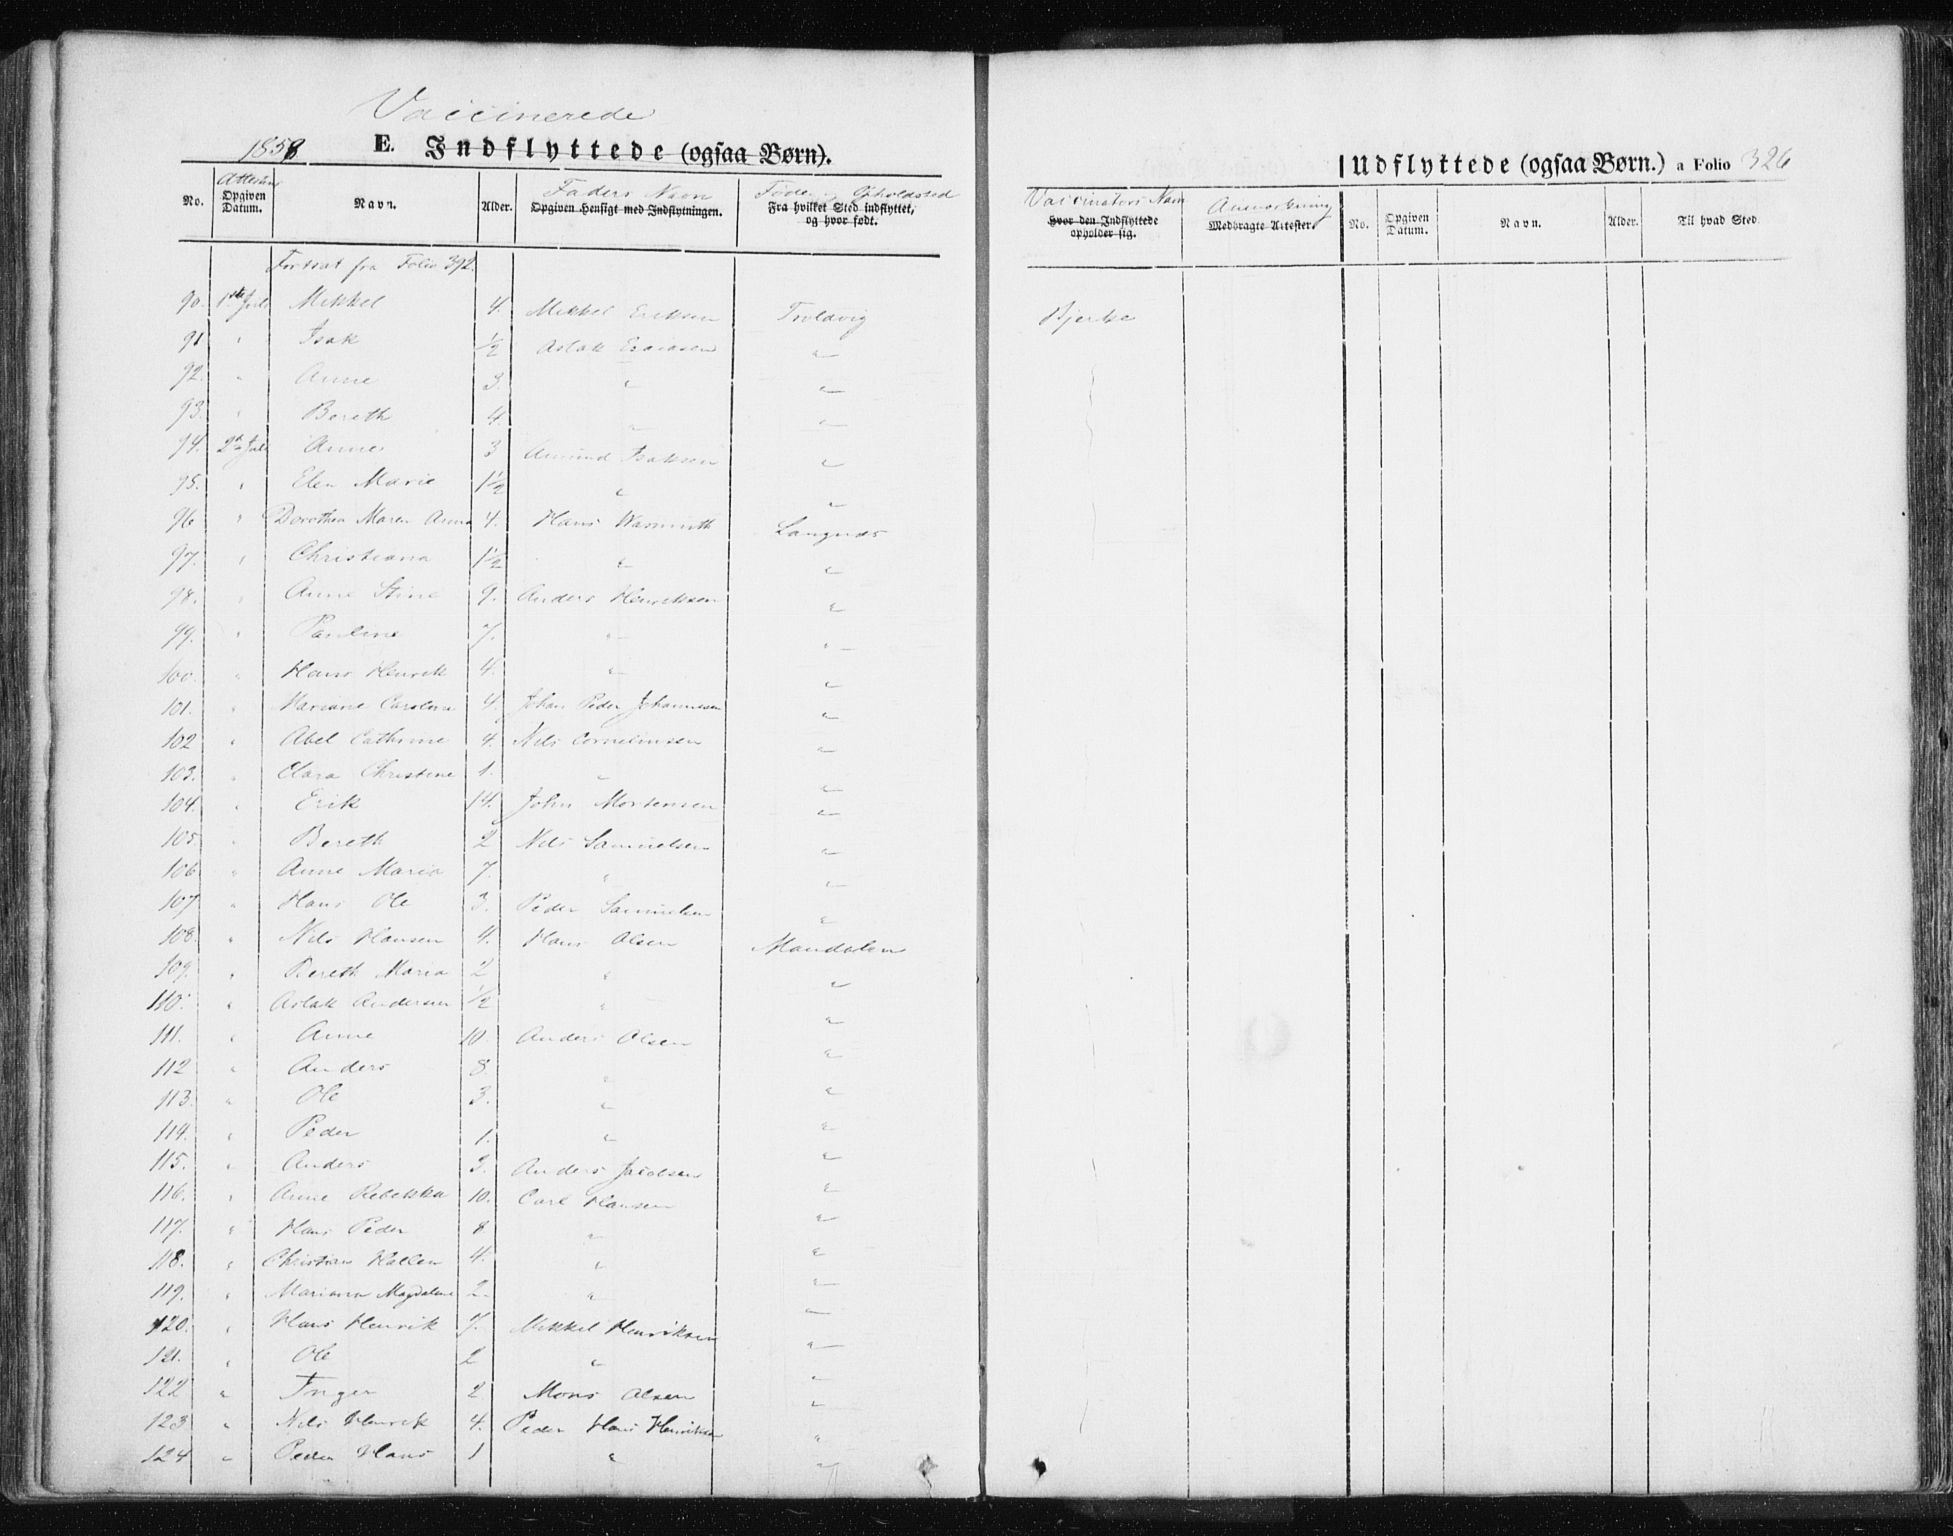 Vaccinerede
1858 E. Indflyttede (ogsaa Børn).
Udflyttede (ogsaa Børn.) a Folio 326
Attestens Faders Navn Føde og Opholdsted Vaccinators Navn Anmerkning
No. Opgiven Datum. Navn. Alder. Opgiven Hensigt med Indflytningen. Fra hvilket Sted indflyttet, og hvor født. Hvor den Indflyttede opholder sig. Medbragte Attester. No. Opgiven Datum. Navn. Alder. Til hvad Sted.
Fortsat fra Folio 392.
90. 1ste Juli Mikkel 4. Mikkel Eriksen Troldvig Bjerke
91 " Isak 1/2 Aslak " 
92. " Anne 3. " "
93. " Bereth 4. " "
94. 2den Juli Anne 3 Amund Isaksen "
95. " Elen Marie 1 1/2 " "
96 " Dorothea Maren Anna 4. Hans Warmuth Langnæs
97. " Christiana 1 1/2 " "
98. " Anne Stine 9. Anders Henriksen "
99. " Pauline 7. " "
100. " Hans Henrik 4. " "
101. " Mariane Caroline 4. Johan Peder Johannesen "
102 " Abel Cathrine 4. Nils Cornelinsen "
103. " Clara Christine 1. " "
104. " Erik 14. John Mortensen "
105. " Bereth 2 Nils Samuelsen "
106 " Anne Maria 7. " "
107 " Hans Ole 3. Peder Samuelsen "
108. " Nils Hansen 4. Hans Olsen Mandalen
109. " Bereth Maria 2 " "
110. " Aslak Andersen 1/2 " "
111. " Anne 10. Anders Olsen "
112 " Anders 8. " "
113. " Ole 3. " "
114. " Peder 1. " "
115. " Anders 3. Anders Jacobsen "
116. " Anne Rebekka 10. Carl Hansen "
117. " Hans Peder 8 " "
118. " Christian Hallen 4. " "
119. " Mariana Magdalene 2. " "
120. " Hans Henrik 7. Mikkel Henriksen "
121. " Ole 2 " "
122 " Inger 2 Mons Olsen "
123 " Nils Henrik 4. Peder Hans Henriksen "
124 " Peder Hans 1 " "